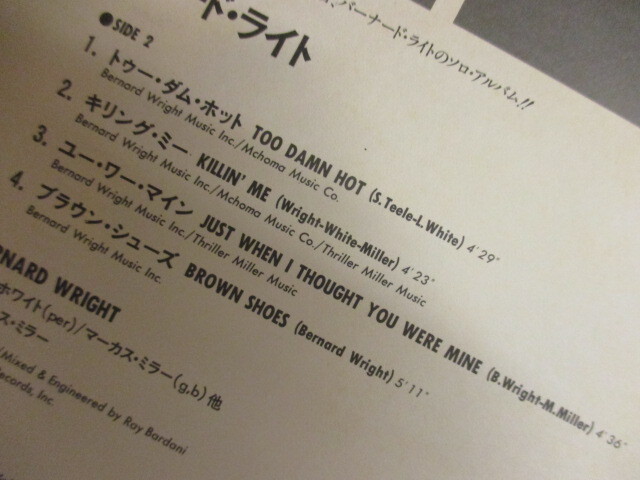 バーナード・ライトのソロ・アルバム!!
ド・ライト
●SIDE 2
1. トゥー・ダム・ホット TOO DAMN HOT (S.Teele-L.White) 4'29"
Bernard Wright Music Inc./Mchoma Music Co.
2. キリング・ミー KILLIN' ME (Wright-White-Miller) 4'23"
Bernard Wright Music Inc./Mchoma Music Co./Thriller Miller Music
3. ユー・ワー・マイン JUST WHEN I THOUGHT YOU WERE MINE (B.Wright-M.Miller) 4'36"
Bernard Wright Music Inc./Thriller Miller Music
4. ブラウン・シューズ BROWN SHOES (Bernard Wright) 5'11"
Bernard Wright Music Inc.
RNARD WRIGHT
ホワイト(per)/マーカス・ミラー(g,b)他
ス・ミラー
/Mixed & Engineered by Ray Bardani
ecords, Inc.